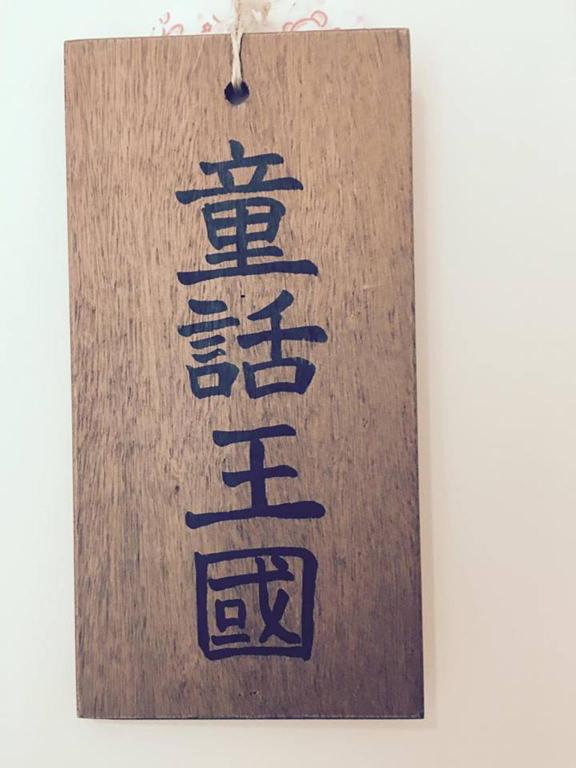 童話王國